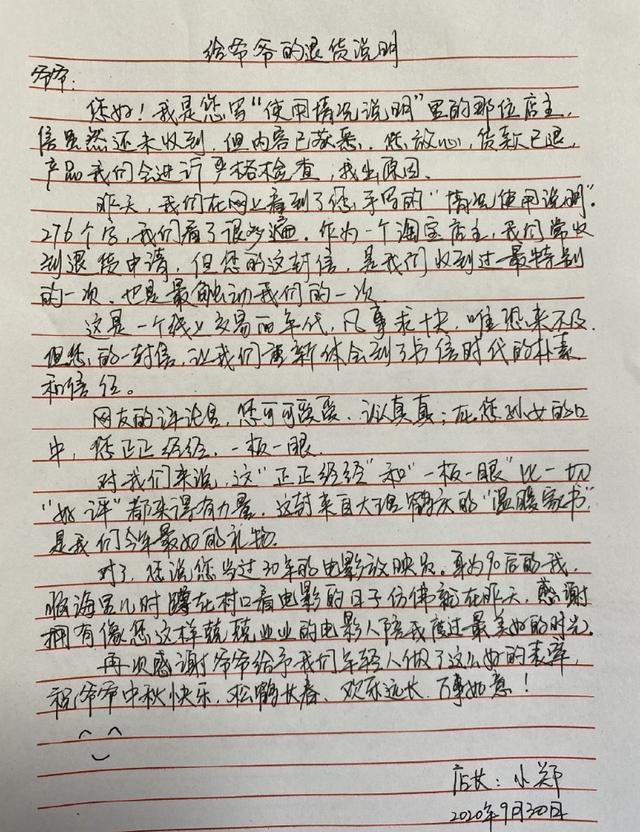 给爷爷的退货说明
爷爷:
您好!我是您写“使用情况说明”里的那位店主,
信虽然还未收到,但内容已获悉.您放心,货款已退,
产品我们会进行严格检查,找出原因.
昨天,我们在网上看到了您手写的“情况使用说明”.
276个字,我们看了很多遍.作为一个淘宝店主,我们常收
到退货申请,但您的这封信,是我们收到过最特别
的一次.也是最触动我们的一次
这是一个线上交易的年代,凡事求快,唯恐来不及.
但您的一封信,让我们重新体会到了书信时代的朴素
和信任.
网友的评论里,您可可爱爱.认认真真;在您孙女的口
中,您正正经经.一板一眼.
对我们来说,这“正正经经”和“一板一眼”比一切
“好评”都来得有力量.这封来自大理鹤庆的“温暖家书”
是我们今年最好的礼物.
对了,您说您当过30年的电影放映员.身为90后的我,
脑海里儿时蹲在村口看电影的日子仿佛就在昨天.感谢
拥有像您这样兢兢业业的电影人陪我度过最美好的时光.
再次感谢爷爷给予我们年轻人做了这么好的表率,
祝爷爷中秋快乐.松鹤长春.欢乐远长.万事如意!
店长:小郑
2020年9月30日